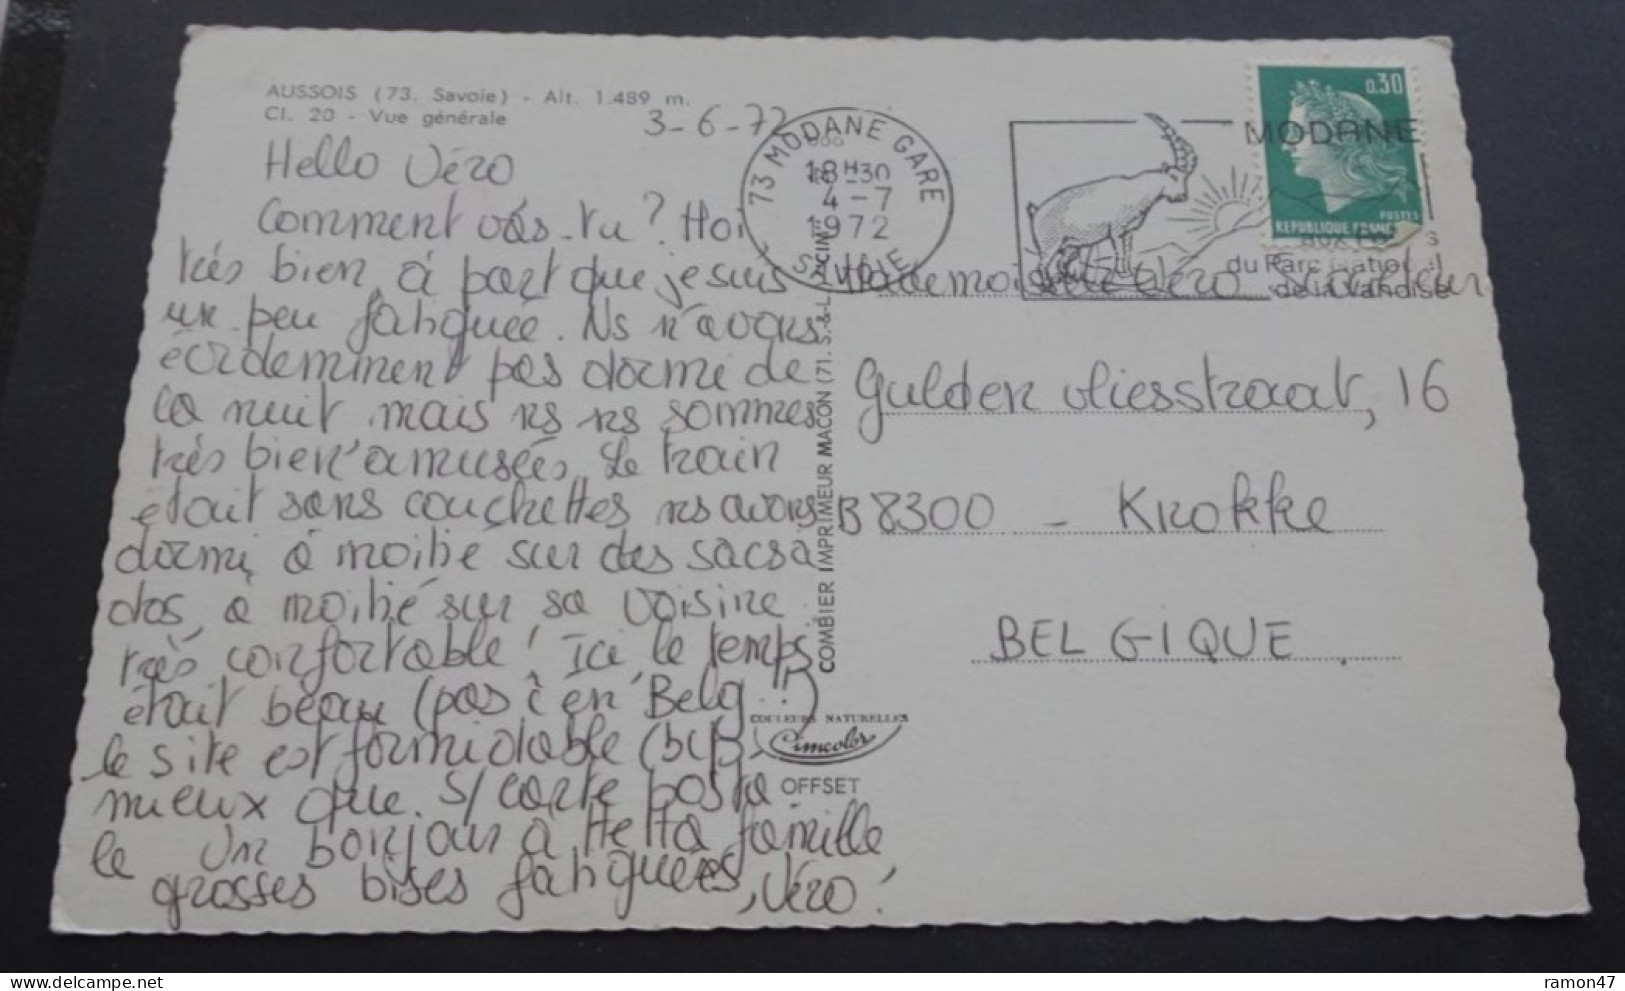 AUSSOIS (73. Savoie) - Alt. 1.489 m.
Cl. 20 - Vue générale
3-6-72
Hello Véro
Comment vas-tu? Moi
très bien, à part que je suis
un peu fatiguée. Ns n'avons
évidemment pas dormi de
la nuit, mais ns ns sommes
très bien amusées. Le train
était sans couchettes ns avons
dormi à moitié sur des sacs à
dos, à moitié sur sa voisine
très confortable! Ici, le temps
était beau (pas c en Belg.!)
le site est formidable (bcp
mieux que s/ carte posta
le Un bonjour à ta famille
grosses bises fatiguées, Véro!
COMBIER IMPRIMEUR MACON (71. S.-&-L.) "CIM"
COULEURS NATURELLES
Cimcolor
OFFSET
73 MODANE GARE
18H30
4-7
1972
SAVOIE
MODANE
du Parc National
de la Vanoise
0,30
POSTES
REPUBLIQUE FRANC
Mademoiselle Véro
Gulden vliesstraat, 16
B 8300 - Knokke
BELGIQUE
ramon47